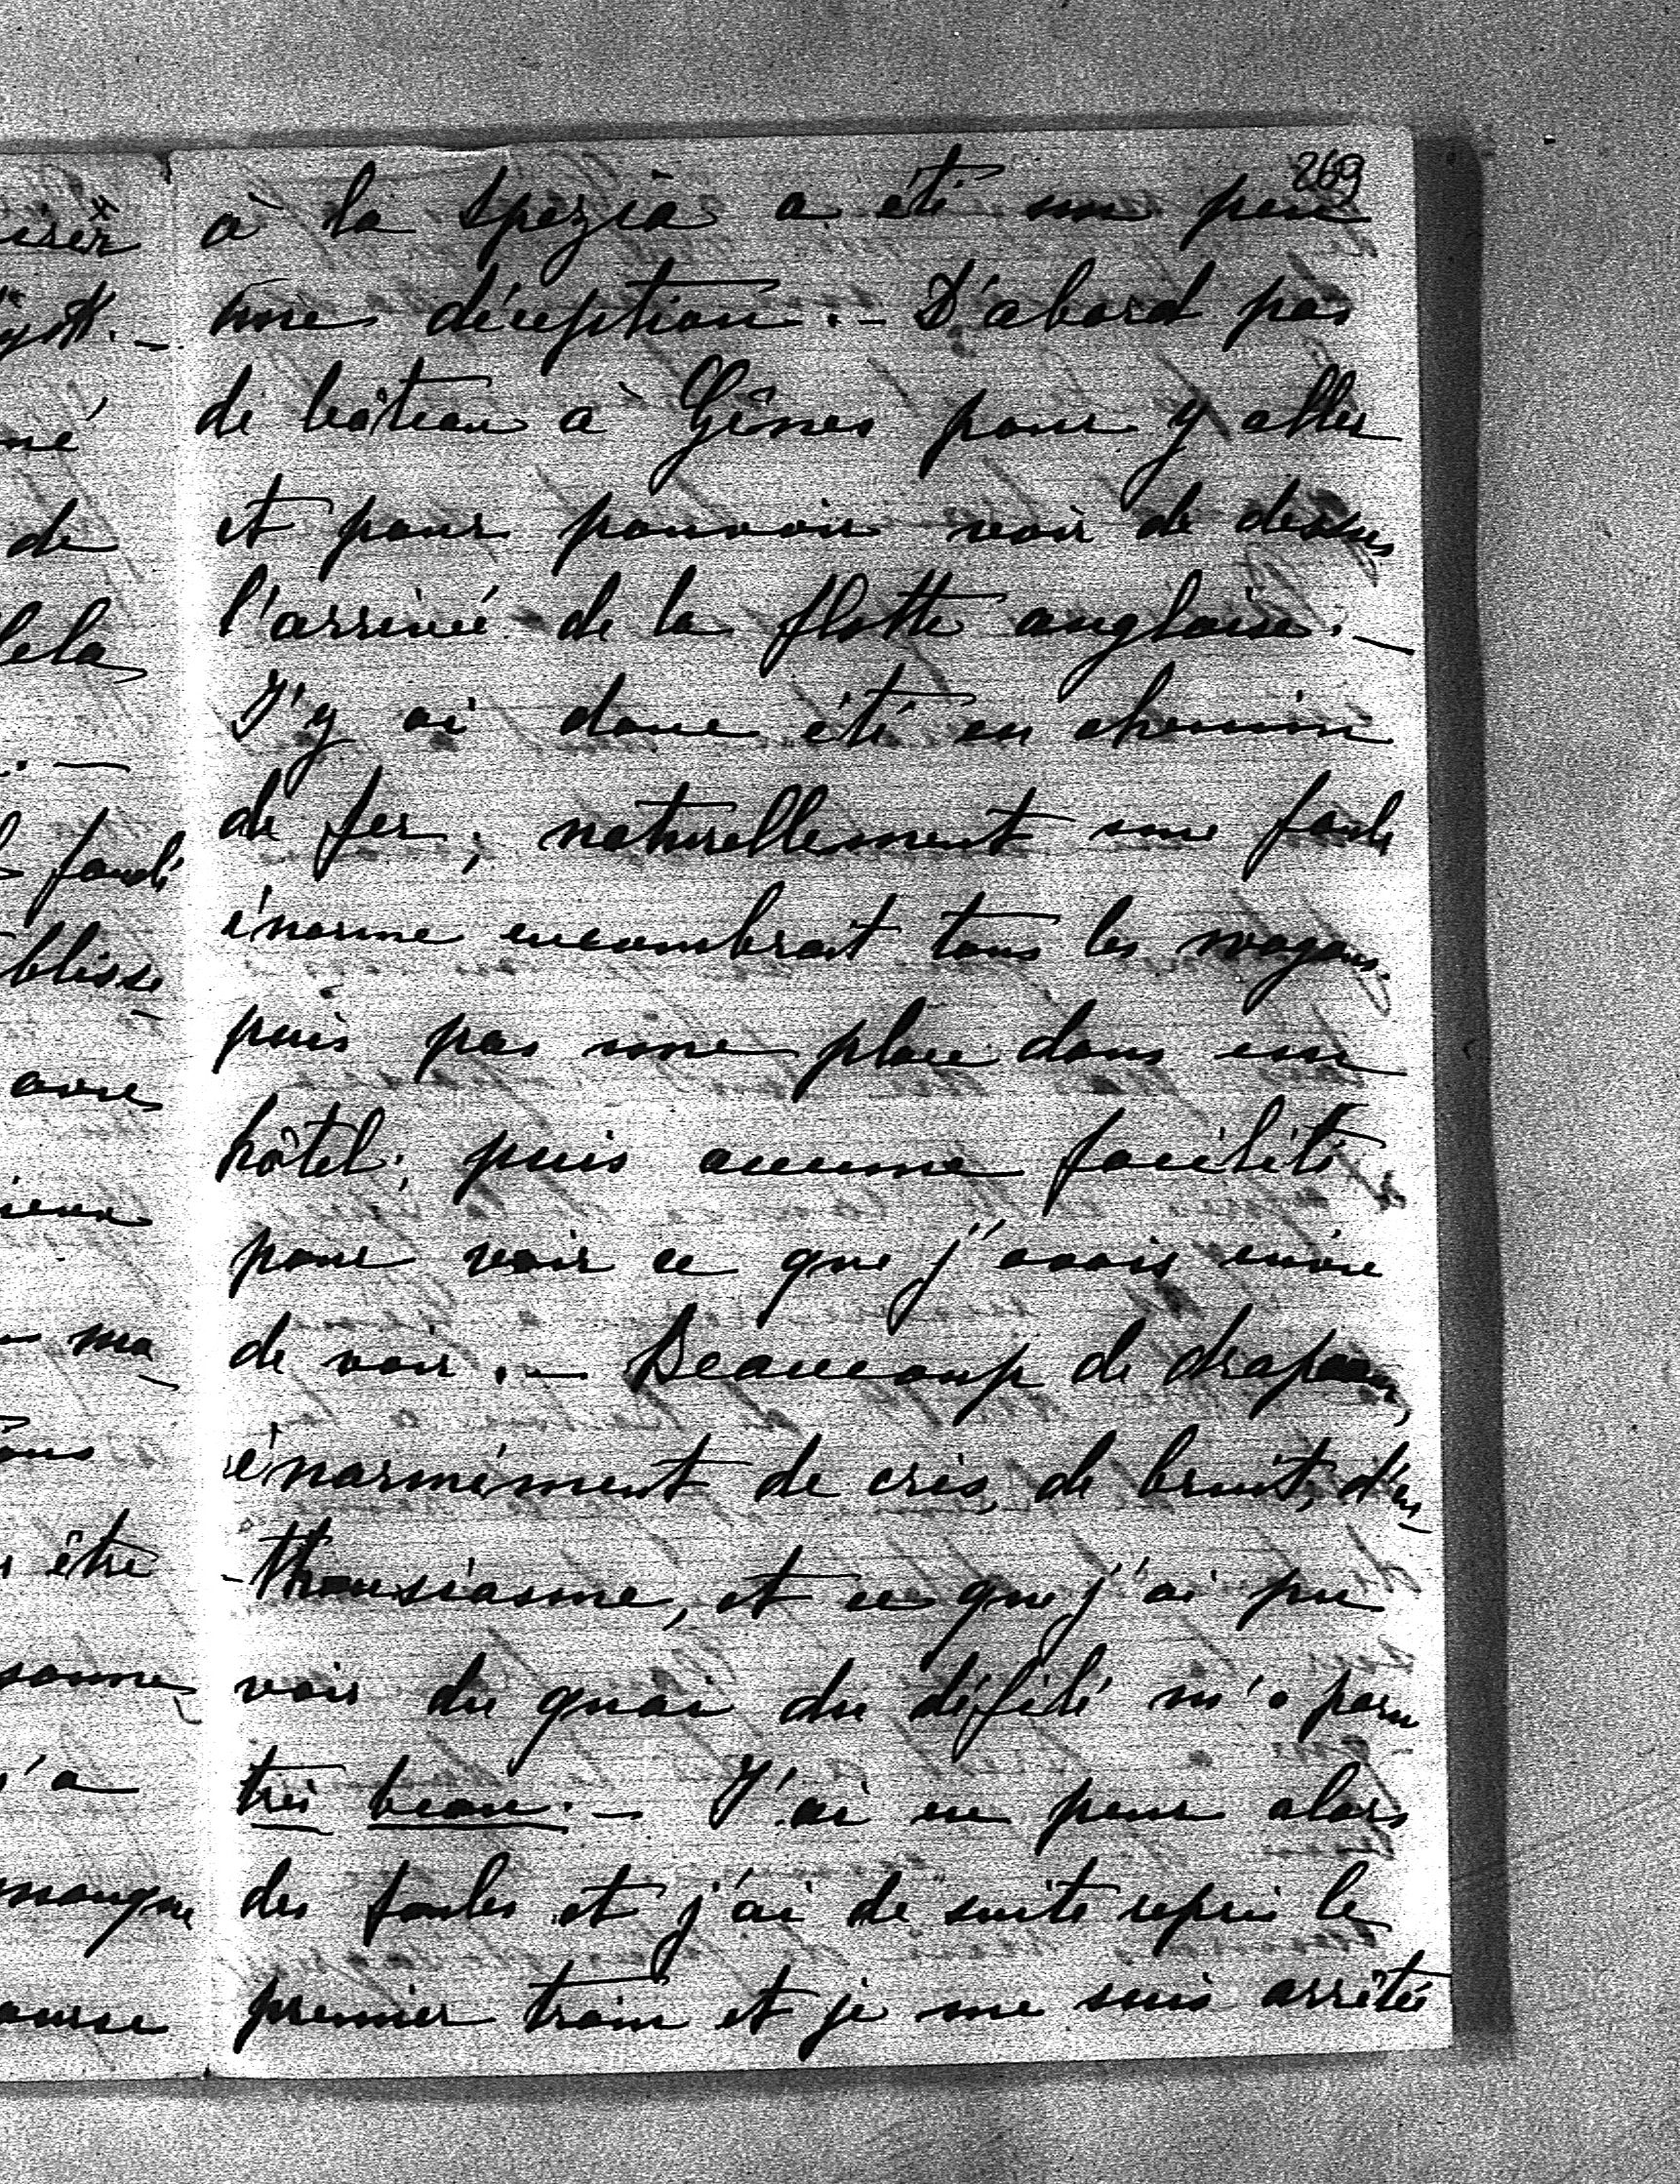 269
à la Spezia a été un peu
une déception. — D'abord pas
de bâteau à Gênes pour y aller
et pour pouvoir voir de dessus
l'arrivée de la flotte anglaise. —
J'y ai donc été en chemin
de fer; naturellement une foule
énorme encombrait tous les wagons.
puis pas une place dans un
hôtel; puis aucune facilité
pour voir ce que j'avais envie
de voir. — Beaucoup de drapeaux,
énormément de cris, de bruit, d'en
-thousiasme, et ce que j'ai pu
voir du quai du défilé m'a paru
très beau. — J'ai eu peur alors
des foules et j'ai de suite repris le
premier train et je me suis arrêtée
de
être